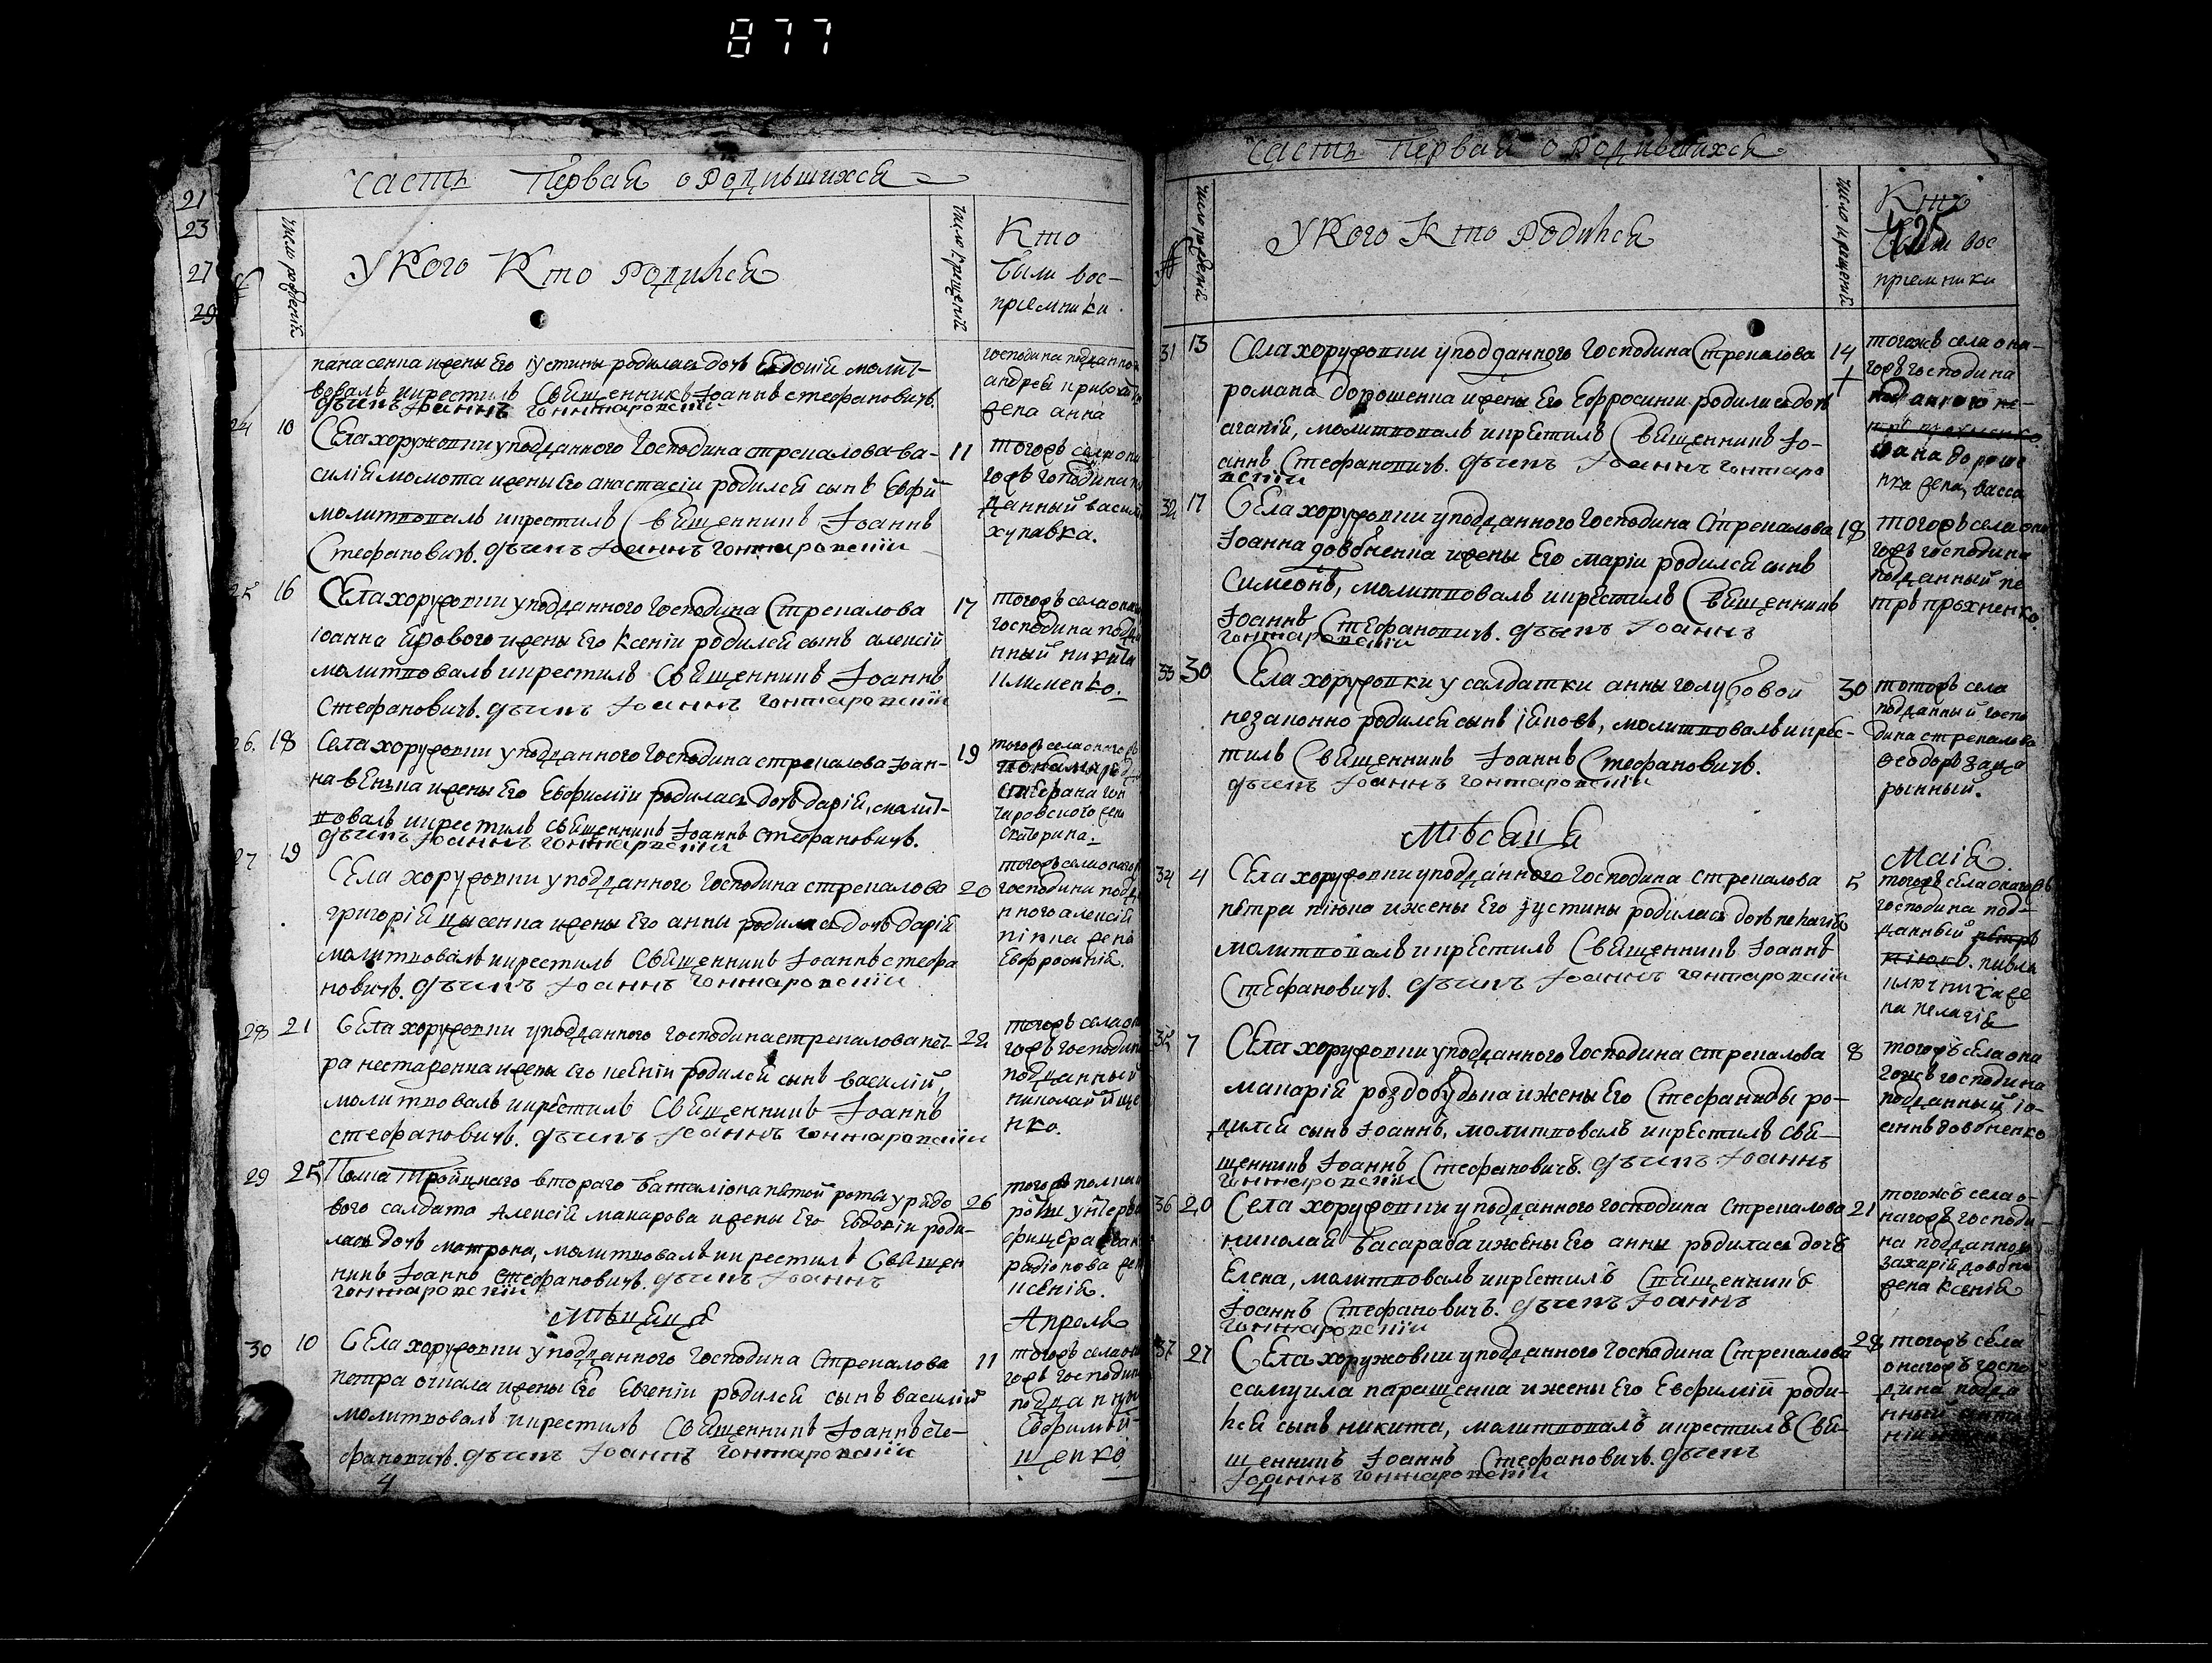 877
21
23
27
29
Часть Первая о Родившихся
№
число рожденій
У Кого Кто Родился
число крещеній
Кто
были вос-
пріемники.
панасенка и жены его іустины родилась дочь Евдокія молит-
вовалъ и крестилъ Священникъ Іоаннъ стефановичъ.
дьчекъ Іоаннъ гонтаровскій
господина подданно
андрея
жена анна
24
10
Села хоружовки у подданного Господина стрекалова ва-
силія момота и жены Его анастасіи родился сынъ Евфи
молитвовалъ и крестилъ Священникъ Іоаннъ
Стефановичъ. дьчекъ Іоаннъ гонтаровскій
11
тогожъ села она
гожъ господина
данный васил
хупавка.
25
16
Села хоружовки у подданного Господина Стрекалова
іоанна ярового и жены Его Ксеніи родился сынъ алексій
молитвовалъ и крестилъ Священникъ Іоаннъ
Стефановичъ. дьчекъ Іоаннъ гонтаровскій
17
тогожъ села
господина подда
нный никита
клименко.
26.
18
Села хоружовки у подданного Господина стрекалова Іоан-
на и жены Его Евфиміи родилась дочь дарія, молит-
вовалъ и крестилъ священникъ Іоаннъ Стефановичъ.
дьчекъ Іоаннъ гонтаровскій
19
тогожъ села оногожъ
Стефана гон
чаровского жена
Екатерина.
27
19
Села хоружовки у подданного Господина стрекалова
григорія и жены Его анны родилась дочь дарія
молитвовалъ и крестилъ Священникъ Іоаннъ стефа
новичъ. дьчекъ Іоаннъ гонтаровскій
20
тогожъ села оного
господина подда
нного алексія
жена
Евфросинія.
28
21
Села хоружовки у подданного господина стрекалова пет-
ра и жены Его родился сынъ василій,
молитвовалъ и крестилъ Священникъ Іоаннъ
стефановичъ. дьчекъ Іоаннъ гонтаровскій
22
тогожъ села он
гожъ господина
подданный
николай ище
нко.
29
25
Полка Тройцкаго втораго баталіона пятой роты у рядо
вого салдата Алексія макарова и жены Его Евдокіи роди-
лась дочь матрона, молитвовалъ и крестилъ Священ
никъ Іоаннъ стефановичъ. дьчекъ Іоаннъ
гонтаровскій
26
тогожъ полка
роты унтеръ
фицера
радіонова жен
ксенія.
Мѣсяца
Апреля
30
10
Села хоружовки у подданного Господина Стрекалова
петра очкала и жены Его Евгеніи родился сынъ василій
молитвовалъ и крестилъ Священникъ Іоаннъ сте-
фановичъ. дьчекъ Іоаннъ гонтаровскій
11
тогожъ села он
гожъ господина
подданный
Евфимъ и-
щенко
4
Часть Первая о Родившихся
№
число рожденій
У Кого Кто Родился
число крещеній
Кто
425
были вос
пріемники
31
13
Села хоружовки у подданного Господина Стрекалова
романа дорошенка и жены Его Ефросиніи родилась дочь
агапія, молитвовалъ и крестилъ Священникъ Іо-
аннъ Стефановичъ. дьчекъ Іоаннъ гонтаро
вскій
14
тогожъ села она-
гожъ господина
подданного
дороше
нка жена, васса
32
17
Села хоружовки у подданного Господина Стрекалова
Іоанна довбненка и жены Его маріи родился сынъ
Симеонъ, молитвовалъ и крестилъ Священникъ
Іоаннъ Стефановичъ. дьчекъ Іоаннъ
гонтаровскій
18
тогожъ села она
гожъ господина
подданный пе
тръ прохненко.
33
30
Села хоружовки у салдатки анны голубовой
незаконно родился сынъ іаковъ, молитвовалъ и крес-
тилъ Священникъ Іоаннъ Стефановичъ.
дьчекъ Іоаннъ гонтаровскій
30
тогожъ села
подданный госпо
дина стрекалова
феодоръ
Мѣсяца
Маія
34
4
Села хоружовки у подданного Господина стрекалова
петра пікна и жены Его іустины родилась дочь пелагія
молитвовалъ и крестилъ Священникъ Іоаннъ
Стефановичъ. дьчекъ Іоаннъ гонтаровскій
5
тогожъ села оногожъ
господина под-
данный
павла
ключника же
на пелагія
35
7
Села хоружовки у подданного Господина стрекалова
макарія роздобудька и жены Его Стефаниды ро-
дился сынъ Іоаннъ, молитвовалъ и крестилъ свя-
щенникъ Іоаннъ Стефановичъ. дьчекъ Іоаннъ
гонтаровскій
8
тогожъ села она
гожъ господина
подданный іо-
аннъ довбненко
36
20
Села хоружовки у подданного господина Стрекалова
николая басараба и жены Его анны родилась дочь
Елена, молитвовалъ и крестилъ Священникъ
Іоаннъ Стефановичъ. дьчекъ Іоаннъ
гонтаровскій
21
тогожъ села о-
нагожъ господи-
на подданного
захарія довбне
жена Ксенія
37
27
Села хоружовки у подданного Господина Стрекалова
самуила паращенка и жены Его Евфиміи роди-
лся сынъ никита, молитвовалъ и крестилъ Свя-
щенникъ Іоаннъ Стефановичъ. дьчекъ
Іоаннъ гонтаровскій
28
тогожъ села
оногожъ госпо
дина подда
нный
4